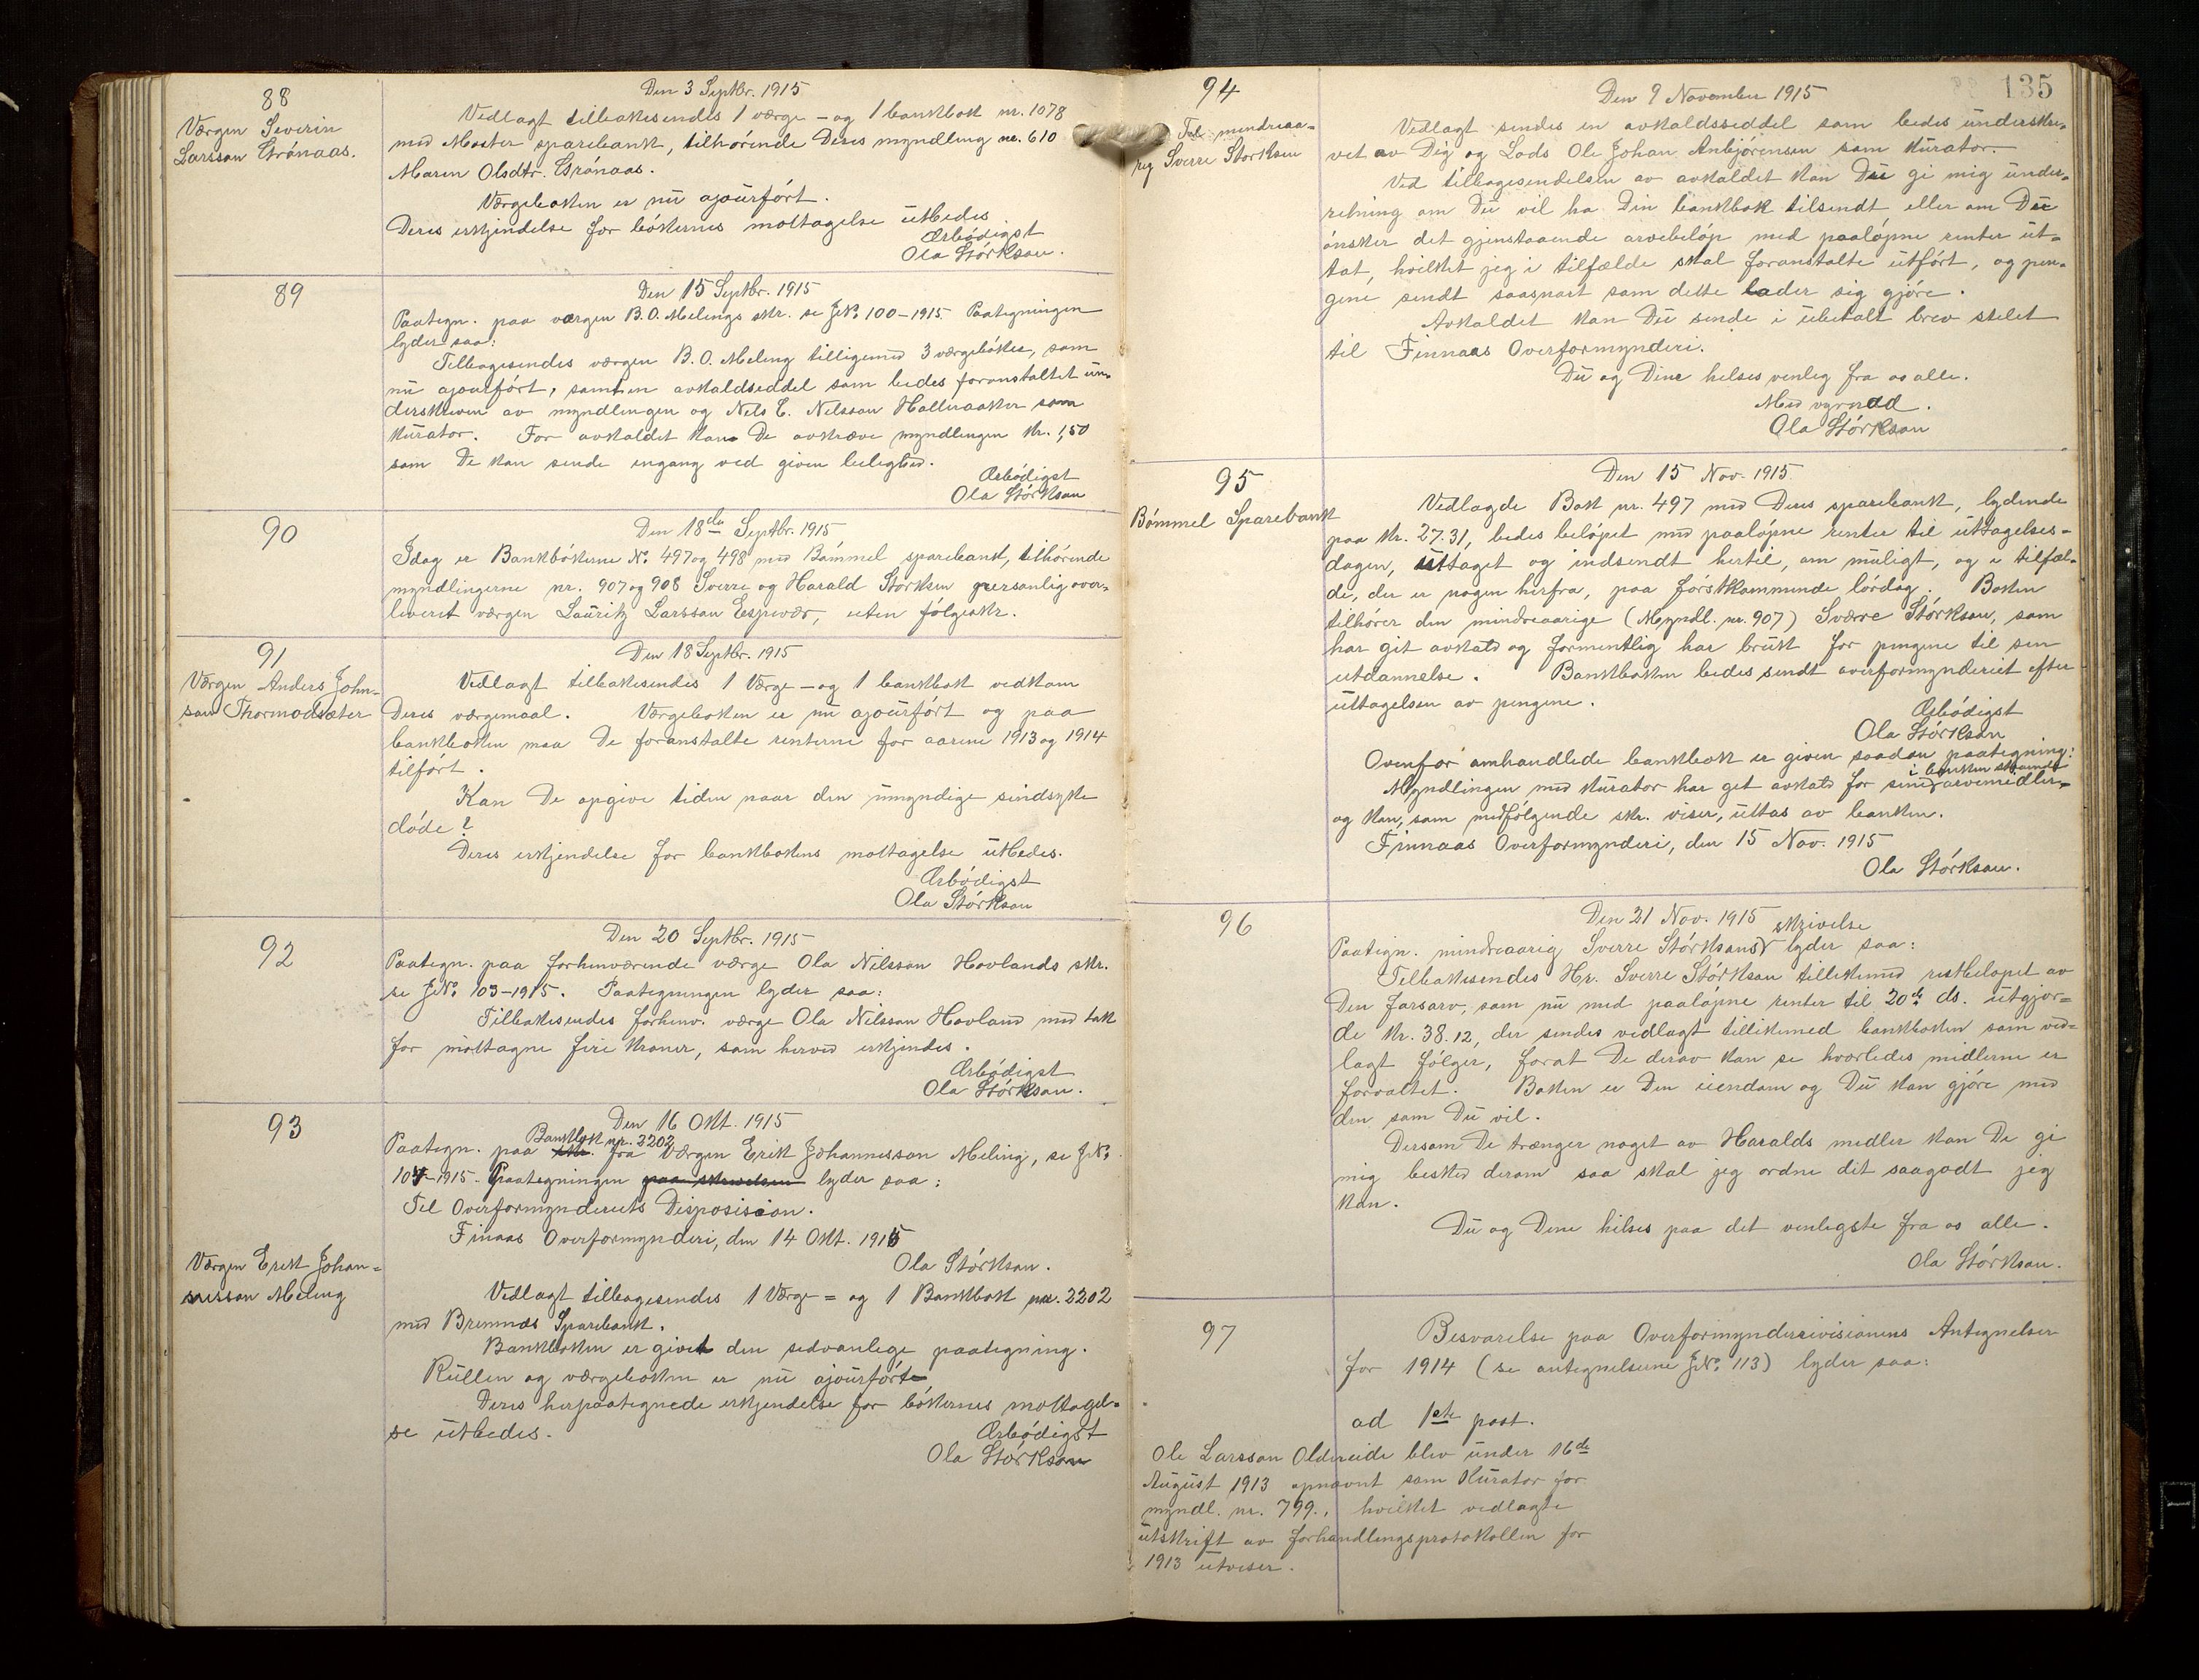 88
Værgen Severin
Larsson Grónaas.
Den 3 Septbr. 1915
Vedlagt tilbakesendes 1 værge- og 1 bankbok nr. 1078
med Moster sparebank, tilhórende Deres myndling nr. 610
Maren Olsdtr. Grónaas.
Værgeboken er nu ajourfórt.
Deres erkjendelse for bókernes mottagelse utbedes
Ærbódigst
Ola Stórkson.
89
Den 15 Septbr. 1915
Paategn. paa værgen B. O. Melings skr. se J.No. 100-1915. Paategningen
lyder saa:
Tilbagesendes værgen B. O. Meling tilligemed 3 værgebóker, som
nu ajourfórt, samt en avkaldseddel som bedes foranstaltet un-
derskreven av myndlingen og Nels E. Nilsson Halleraaker som
kurator. For avkaldet kan De avkræve myndlingen kr. 1,50
som De kan sende engang ved given leilighed.
Ærbódigst
Ola Stórkson
90
Den 18de Septbr. 1915
Idag er Bankbókerne No. 497 og 498 med Bómmel sparebank, tilhórende
myndlingerne nr. 907 og 908 Sverre og Harald Storksen personlig over-
leveret værgen Lauritz Larsson Eespevær, uten fólgeskr.
91
Værgen Anders John-
son Thormodsæter
Den 18 Septbr. 1915
Vedlagt tilbakesendes 1 Værge- og 1 bankbok vedkom
Deres værgemaal. Værgeboken er nu ajourfórt og paa
bankboken maa De foranstalte renterne for aarene 1913 og 1914
tilfórt.
Kan De opgive tiden naar den umyndige sindsyke
dóde?
Deres erkjendelse for bankbokens mottagelse utbedes.
Ærbódigst
Ola Stórkson
92
Den 20 Septbr. 1915
Paategn. paa forhenværende værge Ola Nilsson Hovlands skr.
se J.No. 103-1915. Paategningen lyder saa:
Tilbakesendes forhenv. værge Ola Nilsson Hovland med tak
for mottagne fire kroner, som herved erkjendes.
Ærbódigst
Ola Stórkson.
93
Den 16 Okt. 1915
Bankbok nr. 2202
Paategn. paa skr. fra Værgen Erik Johannesson Meling, se J.No.
107-1915. Paategningen paa skrivelsen lyder saa:
Til Overformynderiets Disposision.
Finaas Overformynderi, den 14 Okt. 1915
Ola Stórkson.
Værgen Erik Johan-
nesson Meling
Vedlagt tilbagesendes 1 Værge= og 1 Bankbok nr. 2202
med Bremnes Sparebank.
Bankboken er givet den sedvanlege paategning.
Rullen og værgeboken er nu ajourfórt
Deres herpaategnede erkjendelse for bókernes mottagel-
se utbedes.
Ærbódigst
Ola Stórkson
135
94
Til mindreaa-
rig Sverre Storksen
Den 9 November 1915
Vedlagt sendes en avkaldsseddel som bedes underskre-
vet av Dig og Lods Ole Johan Anbjórensen som kurator.
Ved tilbagesendelsen av avkaldet kan Du gi mig under-
retning om Du vil ha Din bankbok tilsendt, eller om Du
ónsker det gjenstaaende arvebelóp med paalópne renter ut-
tat, hvilket jeg i tilfælde skal foranstalte utfórt, og pen-
gene sendt saasnart som dette lader sig gjóre.
Avkaldet kan Du sende i ubetalt brev stilet
til Finnaas Overformynderi.
Du og Dine helses venleg fra os alle.
Med vyrnad.
Ola Stórkson
95
Bómmel Sparebank
Den 15 Nov. 1915
Vedlagde Bok nr. 497 med Deres sparebank, lydende
paa kr. 27.31, bedes belópet med paalópne renter til uttagelses-
dagen, uttaget og indsendt hertil, om muligt, og i tilfæl-
de, der er nogen herfra, paa fórstkommende lórdag. Boken
tilhórer den mindreaarige (Myndl. nr. 907) Sverre Stórkson, som
har git avkald og formentlig har bruk for pengene til sin
utdannelse. Bankboken bedes sendt overformynderiet efter
uttagelsen av pengene.
Ærbódigst
Ola Stórkson
Ovenfor omhandlede bankbok er given saadan paategning:
i banken
Myndlingen med kurator har git avkald for sine arvemidler
og kan, som medfólgende skr. viser, uttas av banken.
Finnaas Overformynderi, den 15 Nov. 1915
Ola Stórkson.
96
Den 21 Nov. 1915
skrivelse
Paategn. mindreaarig Sverre Stórksons lyder saa:
Tilbakesendes Hr. Sverre Stórkson tillikemed restbelópet av
Den farsarv, som nu med paalópne renter til 20de ds. utgjor-
de kr. 38.12, der sendes vedlagt tillikemed bankboken som ved-
lagt fólger, forat De derav kan se hvorledes midlerne er
forvaltet. Boken er Din eiendom og Du kan gjóre med
den som Du vil.
Dersom De trænger noget av Haralds midler kan De gi
mig besked derom saa skal jeg ordne dit saagodt jeg
kan.
Du og Dine hilses paa det venlegste fra os alle.
Ola Stórkson.
97
Besvarelse paa Overformynderrevisionens Antegnelser
for 1914 (se antegnelserne J.No. 113) lyder saa:
ad 1ste post.
Ole Larsson Oldereide blev under 16de
August 1913 opnævnt som Kurator for
myndl. nr. 799., hvilket vedlagte
utskrift av forhandlingsprotokollen for
1913 utviser.